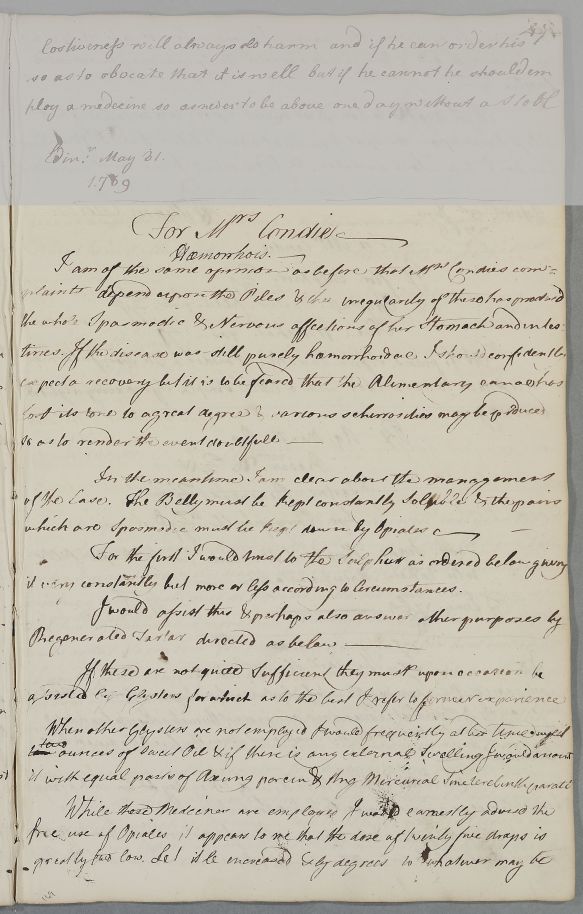 Costiveness will always do harm and if he can order his
so as to obviate that it is well but if he cannot he should em
ploy a medecine so as never to be above one day without a Stool
Edinr. May 21.
1789
For Mrs Condie
Hæmorrhois.
I am of the same opinion as before that Mrs Condies com=
plaints depend upon the Piles & the irregularity of these has produced
the whole Spasmodic & Nervous affections of her Stomach and intes
tines. If the disease was still purely hæmorrhoidal I should confidently
expect a recovery but it is to be feared that the Alimentary canal has
lost its tone to a great degree & various schirrosities may be produced
so as to render the event doubtfull
In the meantime I am clear about the management
of the Case. The Belly must be kept constantly Soluble & the pains
which are Spasmodic must be kept down by Opiates
For the first I would trust to the Sulphur as ordered below giving
it very constantly but more or less according to Circumstances.
I would assist this & perhaps also answer other purposes by
Regenerated Tartar directed as below
If these are not quite Sufficient they must upon occasion be
assisted by Glysters for which as to the best I refer to former experience
When other Glysters are not employed I would frequently at bed time
two ounces of Sweet Oil & if there is any external Swelling I would anoint
it with equal parts of Axung porcin & Ung Mercurial
While these Medecines are employed I would earnestly advise the
free use of Opiates it appears to me that the dose of twenty five drops is
greatly too low. Let it be increased & by degrees to whatever may be